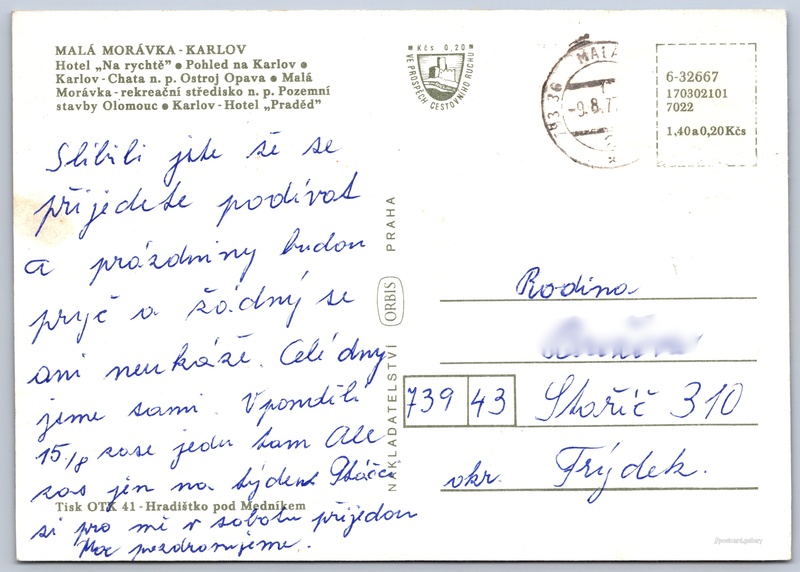 MALÁ MORÁVKA - KARLOV
Hotel „Na rychtě" • Pohled na Karlov •
Karlov - Chata n. p. Ostroj Opava • Malá
Morávka - rekreační středisko n. p. Pozemní
stavby Olomouc • Karlov - Hotel „Praděd"
Slíbili jste že se
přijedete podívat
a prázdniny budou
pryč a žádný se
ani neukáže. Celé dny
jsme sami. V pondělí
15./8 zase jedu tam Ale
zas jen na týden
si pro mě v sobotu přijedou
Moc pozdravujeme.
Tisk OTK 41 - Hradištko pod Medníkem
NAKLADATELSTVÍ ORBIS PRAHA
Kčs 0,20
VE PROSPĚCH CESTOVNÍHO RUCHU
MALÁ
-9.8.77
6-32667
170302101
7022
1,40 a 0,20 Kčs
Rodina
739 43 Staříč 310
okr. Frýdek.
//postcard.gallery